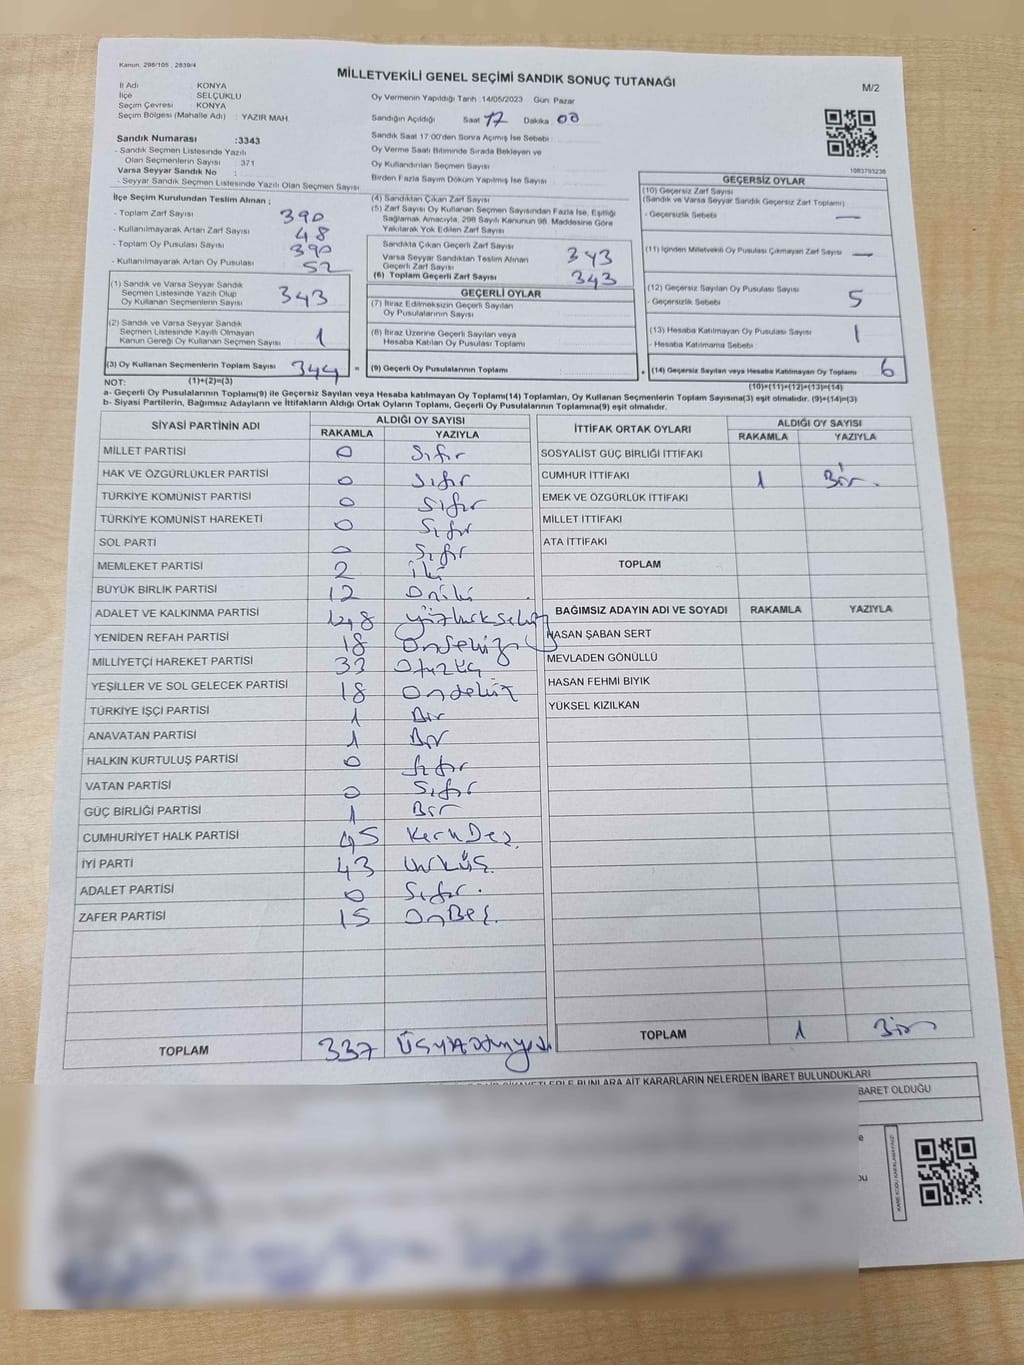 Kanun, 298/105 , 2839/4
MİLLETVEKİLİ GENEL SEÇİMİ SANDIK SONUÇ TUTANAĞI
M/2
İl Adı KONYA
İlçe SELÇUKLU
Seçim Çevresi KONYA
Seçim Bölgesi (Mahalle Adı) : YAZIR MAH.
Sandık Numarası :3343
- Sandık Seçmen Listesinde Yazılı
Olan Seçmenlerin Sayısı : 371
Varsa Seyyar Sandık No :
- Seyyar Sandık Seçmen Listesinde Yazılı Olan Seçmen Sayısı
Oy Vermenin Yapıldığı Tarih :14/05/2023 Gün: Pazar
Sandığın Açıldığı Saat 17 Dakika : 00
Sandık Saat 17:00'den Sonra Açımış İse Sebebi :
Oy Verme Saati Bitiminde Sırada Bekleyen ve
Oy Kullandırılan Seçmen Sayısı
Birden Fazla Sayım Döküm Yapılmış İse Sayısı :
1083793236
İlçe Seçim Kurulundan Teslim Alınan ;
- Toplam Zarf Sayısı 390
- Kullanılmayarak Artan Zarf Sayısı 48
- Toplam Oy Pusulası Sayısı 390
- Kullanılmayarak Artan Oy Pusulası 52
(1) Sandık ve Varsa Seyyar Sandık
Seçmen Listesinde Yazılı Olup
Oy Kullanan Seçmenlerin Sayısı 343
(2) Sandık ve Varsa Seyyar Sandık
Seçmen Listesinde Kayıtlı Olmayan
Kanun Gereği Oy Kullanan Seçmen Sayısı 1
(3) Oy Kullanan Seçmenlerin Toplam Sayısı 344 =
(4) Sandıktan Çıkan Zarf Sayısı
(5) Zarf Sayısı Oy Kullanan Seçmen Sayısından Fazla İse, Eşitliği
Sağlamak Amacıyla, 298 Sayılı Kanunun 98. Maddesine Göre
Yakılarak Yok Edilen Zarf Sayısı
Sandıkta Çıkan Geçerli Zarf Sayısı
Varsa Seyyar Sandıktan Teslim Alınan
Geçerli Zarf Sayısı 343
(6) Toplam Geçerli Zarf Sayısı 343
GEÇERLİ OYLAR
(7) İtiraz Edilmeksizin Geçerli Sayılan
Oy Pusulalarının Sayısı
(8) İtiraz Üzerine Geçerli Sayılan veya
Hesaba Katılan Oy Pusulası Toplamı
(9) Geçerli Oy Pusulalarının Toplamı +
GEÇERSİZ OYLAR
(10) Geçersiz Zarf Sayısı
(Sandık ve Varsa Seyyar Sandık Geçersiz Zarf Toplamı)
- Geçersizlik Sebebi : —
(11) İçinden Milletvekili Oy Pusulası Çıkmayan Zarf Sayısı —
(12) Geçersiz Sayılan Oy Pusulası Sayısı 5
- Geçersizlik Sebebi :
(13) Hesaba Katılmayan Oy Pusulası Sayısı 1
- Hesaba Katılmama Sebebi :
(14) Geçersiz Sayılan veya Hesaba Katılmayan Oy Toplamı 6
NOT: (1)+(2)=(3) (10)+(11)+(12)+(13)=(14)
a- Geçerli Oy Pusulalarının Toplamı(9) ile Geçersiz Sayılan veya Hesaba katılmayan Oy Toplamı(14) Toplamları, Oy Kullanan Seçmenlerin Toplam Sayısına(3) eşit olmalıdır. (9)+(14)=(3)
b- Siyasi Partilerin, Bağımsız Adayların ve İttifakların Aldığı Oyların Toplamı, Geçerli Oy Pusulalarının Toplamına(9) eşit olmalıdır.
SİYASİ PARTİNİN ADI ALDIĞI OY SAYISI
RAKAMLA YAZIYLA
MİLLET PARTİSİ 0 Sıfır
HAK VE ÖZGÜRLÜKLER PARTİSİ 0 Sıfır
TÜRKİYE KOMÜNİST PARTİSİ 0 Sıfır
TÜRKİYE KOMÜNİST HAREKETİ 0 Sıfır
SOL PARTİ 0 Sıfır
MEMLEKET PARTİSİ 2 iki
BÜYÜK BİRLİK PARTİSİ 12 oniki
ADALET VE KALKINMA PARTİSİ 148
YENİDEN REFAH PARTİSİ 18 onsekiz
MİLLİYETÇİ HAREKET PARTİSİ 33 otuzüç
YEŞİLLER VE SOL GELECEK PARTİSİ 18 onsekiz
TÜRKİYE İŞÇİ PARTİSİ 1 Bir
ANAVATAN PARTİSİ 1 Bir
HALKIN KURTULUŞ PARTİSİ 0 Sıfır
VATAN PARTİSİ 0 Sıfır
GÜÇ BİRLİĞİ PARTİSİ 1 Bir
CUMHURİYET HALK PARTİSİ 45
İYİ PARTİ 43
ADALET PARTİSİ 0 Sıfır.
ZAFER PARTİSİ 15 OnBeş.
TOPLAM 337
İTTİFAK ORTAK OYLARI ALDIĞI OY SAYISI
RAKAMLA YAZIYLA
SOSYALİST GÜÇ BİRLİĞİ İTTİFAKI
CUMHUR İTTİFAKI 1 Bir.
EMEK VE ÖZGÜRLÜK İTTİFAKI
MİLLET İTTİFAKI
ATA İTTİFAKI
TOPLAM
BAĞIMSIZ ADAYIN ADI VE SOYADI RAKAMLA YAZIYLA
HASAN ŞABAN SERT
MEVLADEN GÖNÜLLÜ
HASAN FEHMİ BIYIK
YÜKSEL KIZILKAN
TOPLAM 1 Bir
BUNLARA AİT KARARLARIN NELERDEN İBARET BULUNDUKLARI
BARET OLDUĞU